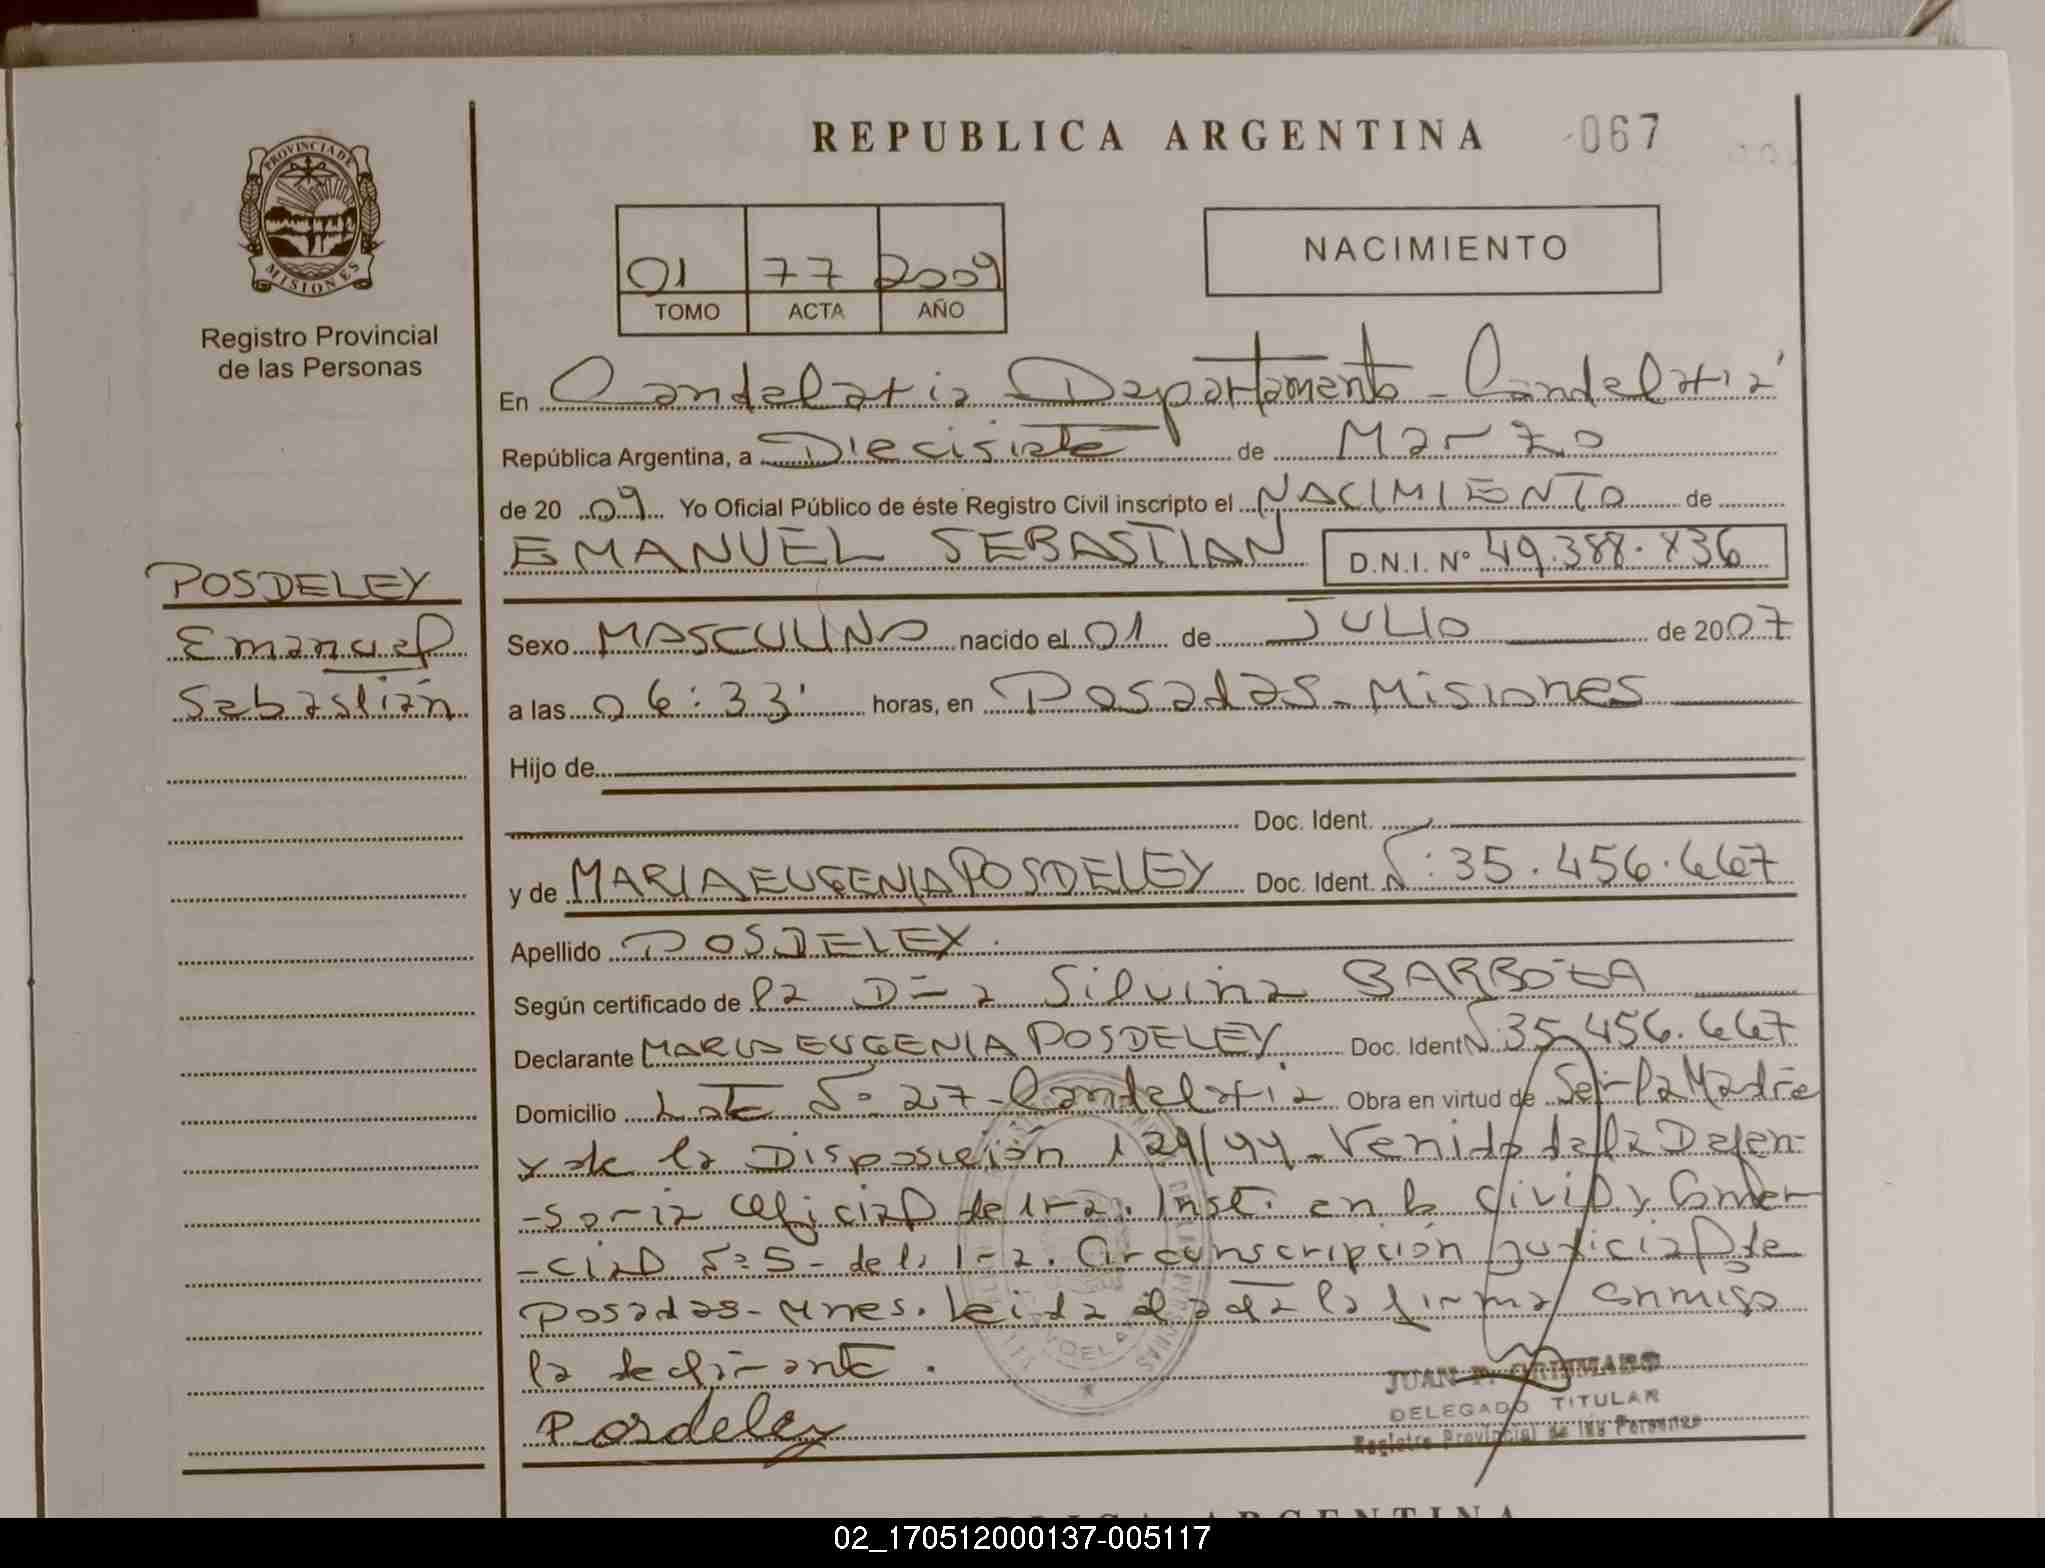 REPUBLICA ARGENTINA 067
PROVINCIA DE MISIONES
Registro Provincial
de las Personas
01 77 2009
TOMO ACTA AÑO
NACIMIENTO
En Candelaria Departamento - Candelaria
República Argentina, a Diecisiete de Marzo
de 2009 Yo Oficial Público de éste Registro Civil inscripto el NACIMIENTO de
EMANUEL SEBASTIAN D.N.I. Nº 49.388.836
POSDELEY
Emanuel
Sebastián
Sexo MASCULINO nacido el 01 de JULIO de 2007
a las 06:33' horas, en Posadas - Misiones
Hijo de
Doc. Ident.
y de MARIA EUGENIA POSDELEY Doc. Ident. Nº: 35.456.667
Apellido POSDELEY.
Según certificado de la Dra Silvina BARBOZA
Declarante MARIA EUGENIA POSDELEY Doc. Ident Nº 35.456.667
Domicilio Lote Nº 27 - Candelaria Obra en virtud de Ser la Madre
y de la Disposición 129/99 - Venido de la Defen-
-soria Oficial de 1ra. Inst. en lo Civil y Comer-
-cial Nº 5 - de la 1ra. Circunscripción Judicial de
Posadas - Mnes. Leida el acta la firma conmigo
la declarante.
Posdeley
JUAN
DELEGADO TITULAR
Registro Provincial de las Personas
ARGENTINA
02_170512000137-005117